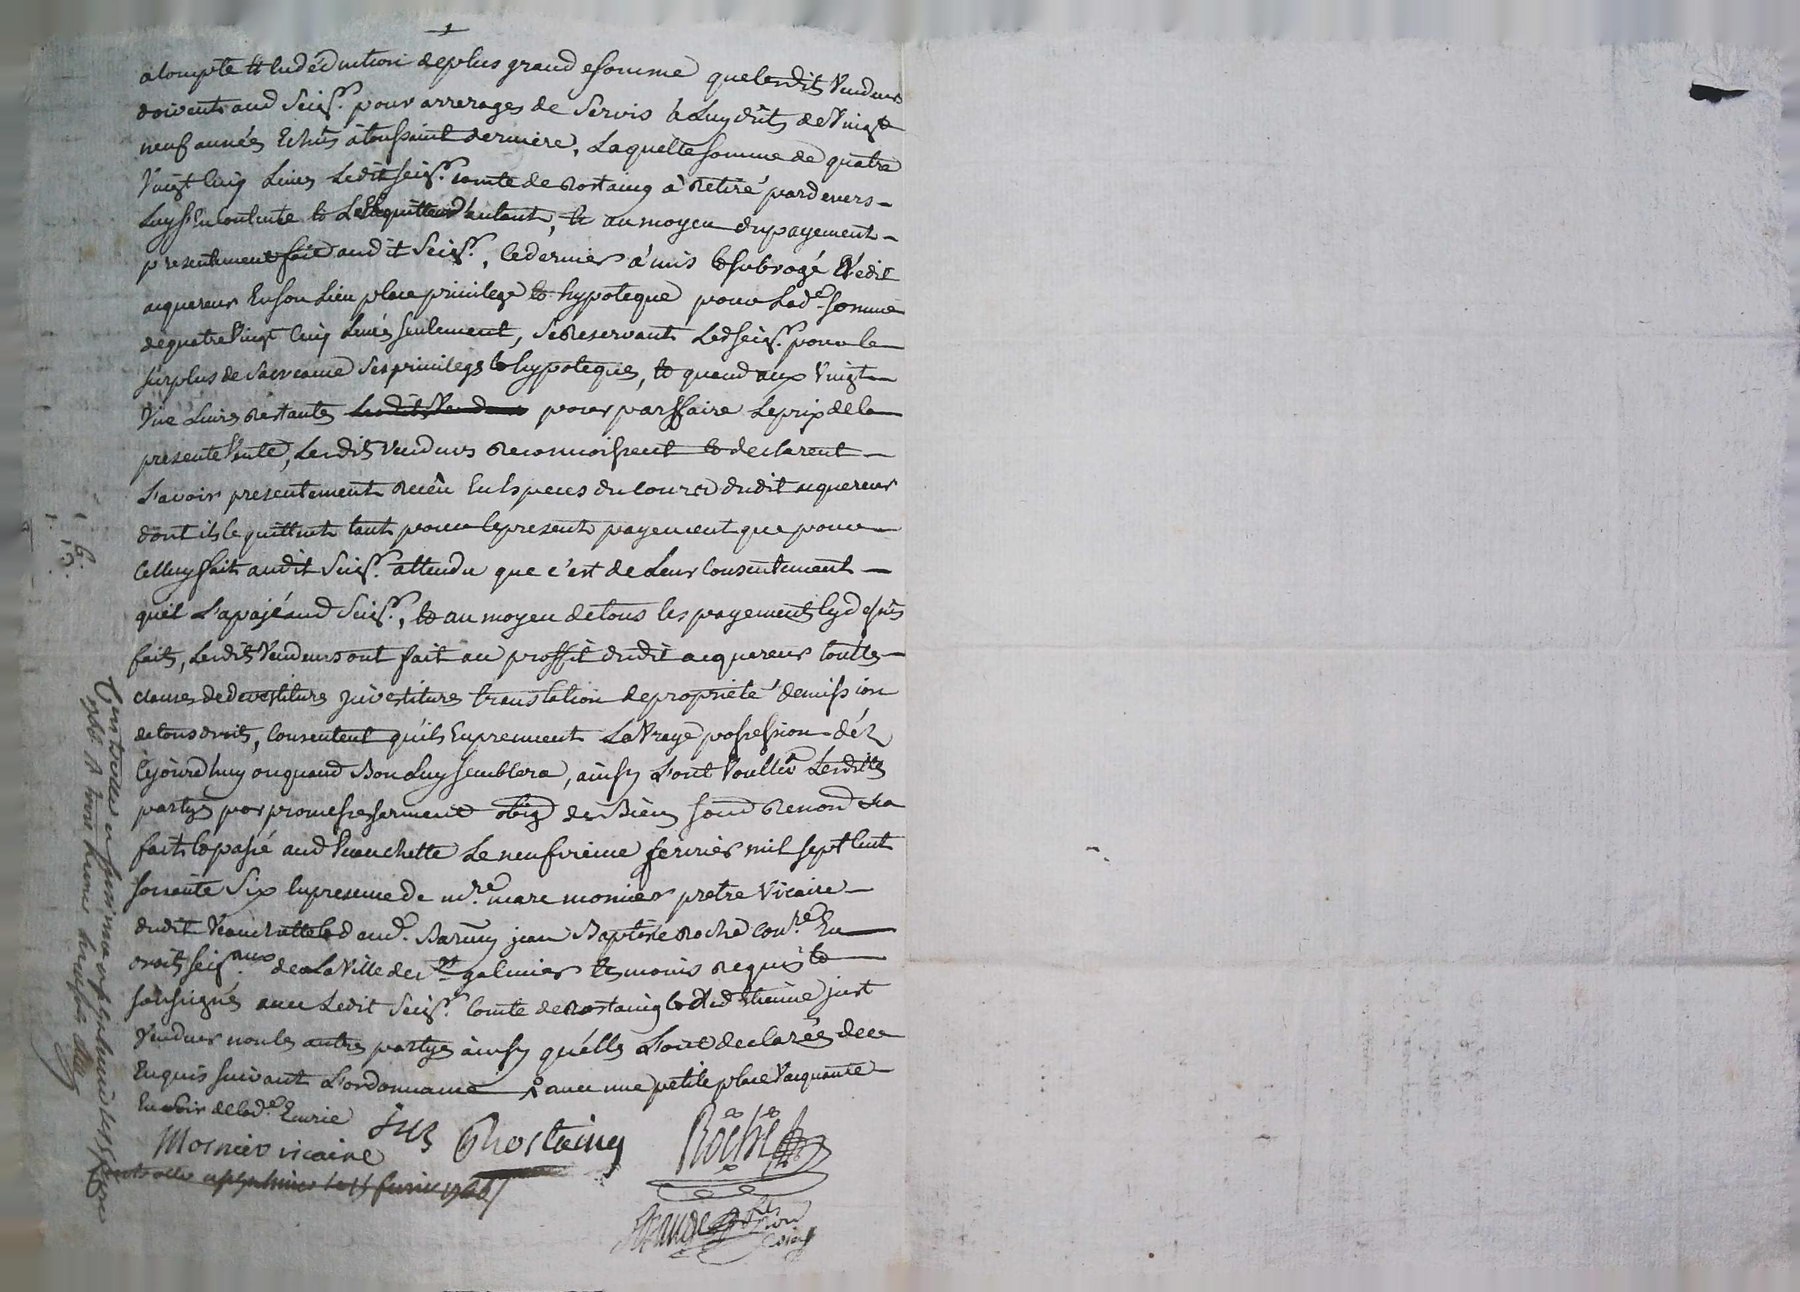 acompte et en déduction de plus grande somme que lesdits Vendeurs
doivent aud Seigr. pour arrerages de Servis a Luy düts de Vingt
neuf années Echûs à toussaint derniere, Laquelle somme de quatre
Vingt Cinq Livres Ledit seigr. comte de Rostaing à Retiré pardevers
Luy s'en contente et Le quitte d'autant, et au moyen du payement
presentement fait audit Seigr., ce dernier à mis et subrogé Ledit
acquereur En son Lieu place privilege et hypoteque pour Lade. somme
de quatre Vingt Cinq Livres seulement, se Reservant Led seigr. pour le
surplus de sa creance ses privileges et hypoteques, et quand aux Vingt
Une Livres Restantes Lesdits Vendeurs pour parffaire Le prix de la
presente Vente, Lesdits Vendeurs Reconnoissent et declarent
L'avoir presentement Recëu En Especes du cours dudit acquereur
dont ils le quittent tant pour le present payement que pour
Celluy fait audit Seigr. attendu que c'est de Leur Consentement
quil L'a payé aud Seigr., et au moyen de tous les payements cy dessûs
faits, Lesdits Vendeurs ont fait au proffit dudit acquereur toutes
clauses de devestiture investiture translation de propriété demission
de tous droits, Consentent quils Enprennent La Vraye possession déz
Cejourd'huy ou quand Bon Luy semblera, ainsy L'ont Voullû Lesdittes
partyes par promesse serment oblig de Biens soum Renond
fait et passé aud Veauchette Le neufvieme fevrier mil sept Cent
soixante Six En presence de mre. marc monier pretre Vicaire
dudit Veauchette et d jean Baptiste Roche Comre. En
droits seigaux de La Ville de st galmier temoins Requis et
soussignés avec Ledit Seigr. Comte de Rostaing et led Etienne just
Vendeur non les autres partyes ainsy quélles L'ont declarées de ce
Enquis suivant L'ordonnance avec une petite place Vacquante
En soir de lade. Ecurie
just Rostaing Roche
Mosnier vicaire
Controllé a st galmier le 15 fevrier 1766
Controllé a st galmier